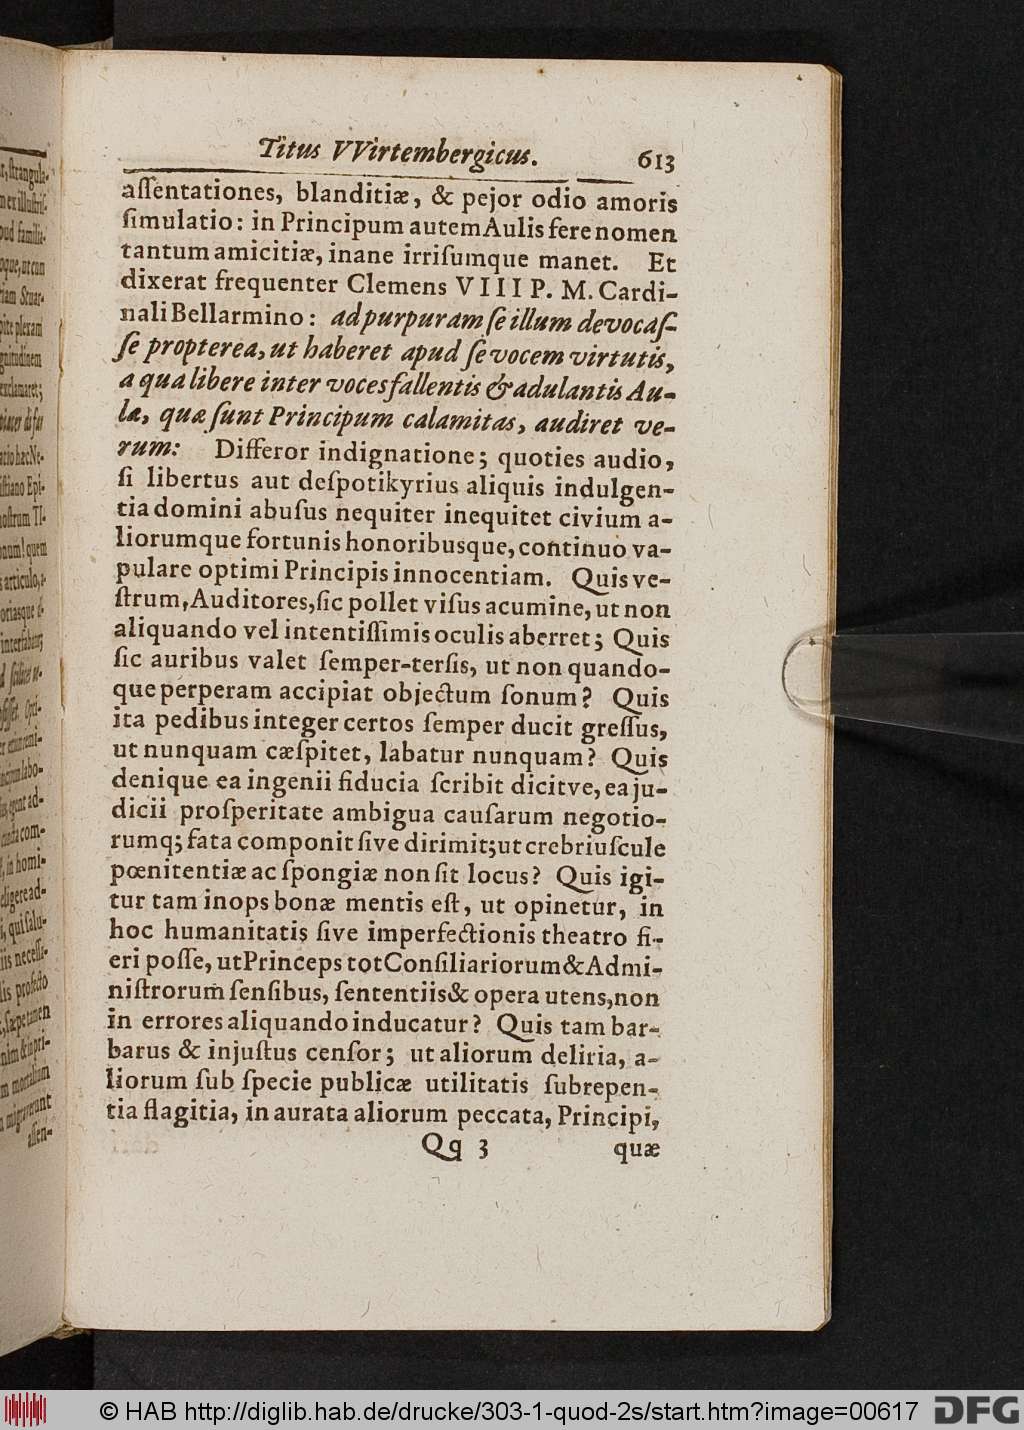 Titus VVirtembergicus. 613
aſſentationes, blanditiæ, & pejor odio amoris
ſimulatio: in Principum autem Aulis fere nomen
tantum amicitiæ, inane irriſumque manet. Et
dixerat frequenter Clemens VIII P. M. Cardi-
nali Bellarmino: ad purpuram ſe illum devocaſ-
ſe propterea, ut haberet apud ſe vocem virtutis,
a qua libere inter voces fallentis & adulantis Au-
læ, quæ ſunt Principum calamitas, audiret ve-
rum: Differor indignatione; quoties audio,
ſi libertus aut deſpotikyrius aliquis indulgen-
tia domini abuſus nequiter inequitet civium a-
liorumque fortunis honoribusque, continuo va-
pulare optimi Principis innocentiam. Quis ve-
ſtrum, Auditores, ſic pollet viſus acumine, ut non
aliquando vel intentiſſimis oculis aberret; Quis
ſic auribus valet ſemper-terſis, ut non quando-
que perperam accipiat objectum ſonum? Quis
ita pedibus integer certos ſemper ducit greſſus,
ut nunquam cæſpitet, labatur nunquam? Quis
denique ea ingenii fiducia ſcribit dicitve, ea ju-
dicii proſperitate ambigua cauſarum negotio-
rumq; fata componit ſive dirimit; ut crebriuſcule
pœnitentiæ ac ſpongiæ non ſit locus? Quis igi-
tur tam inops bonæ mentis eſt, ut opinetur, in
hoc humanitatis ſive imperfectionis theatro fi-
eri poſſe, ut Princeps tot Conſiliariorum & Admi-
niſtrorum ſenſibus, ſententiis & opera utens, non
in errores aliquando inducatur? Quis tam bar-
barus & injuſtus cenſor; ut aliorum deliria, a-
liorum ſub ſpecie publicæ utilitatis ſubrepen-
tia flagitia, inaurata aliorum peccata, Principi,
Qq 3 quæ
© HAB http://diglib.hab.de/drucke/303-1-quod-2s/start.htm?image=00617 DFG